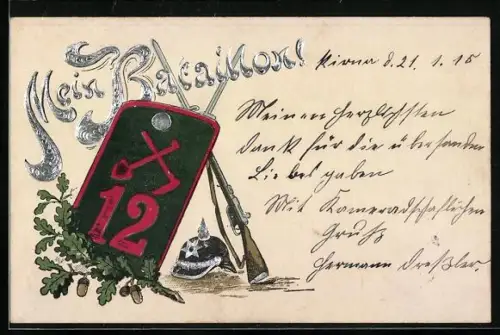 Mein Bataillon!
12
Pirna d. 21. 1. 15
Meinen herzlichsten
Dank für die übersanden
Liebesgaben
Mit Kameradschaftlichen
Gruß
Hermann Dreßler.